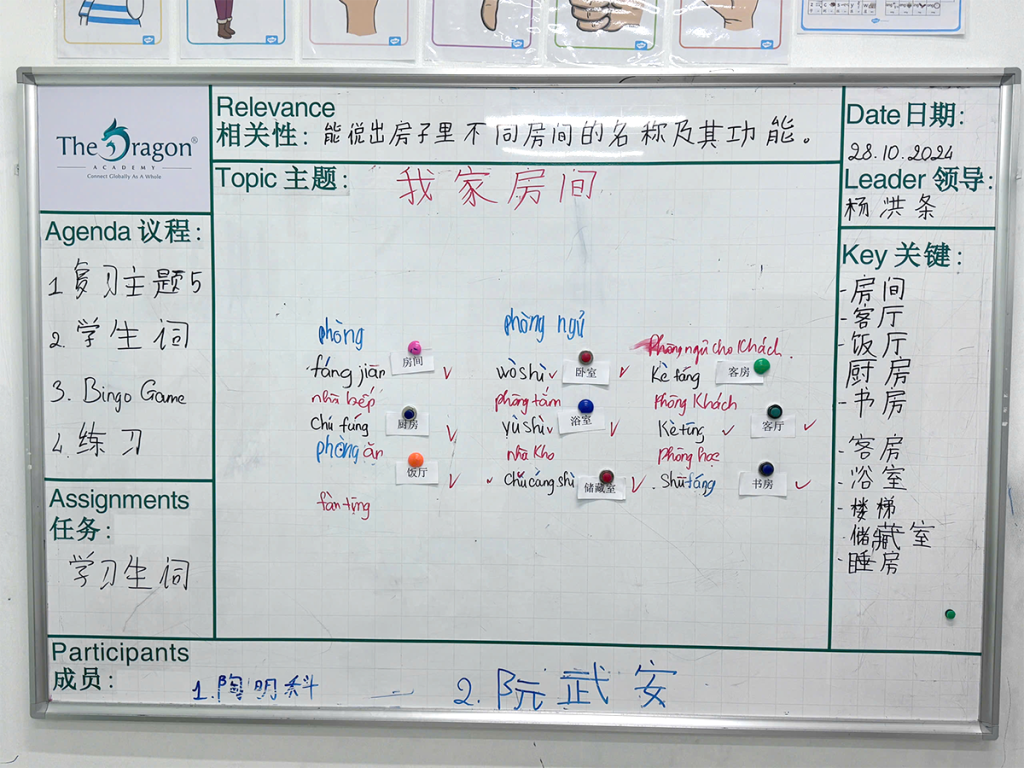 The Dragon®
ACADEMY
Connect Globally As A Whole
Relevance
相关性: 能说出房子里不同房间的名称及其功能。
Date 日期:
28.10.2024
Leader 领导:
杨洪条
Topic 主题: 我家房间
Agenda 议程:
1 复习主题5
2. 学生词
3. Bingo Game
4. 练习
Assignments
任务:
学习生词
phòng
fáng jiān 房间
nhà bếp
Chú fáng 厨房
phòng ăn
饭厅
fàn tīng
phòng ngủ
wò shì 卧室
phòng tắm
yù shì 浴室
nhà kho
Chǔ cáng shì 储藏室
Phòng ngủ cho khách
Kè fáng 客房
Phòng Khách
Kè tīng 客厅
phòng học
Shū fáng 书房
Key 关键:
- 房间
- 客厅
- 饭厅
厨房
- 书房
客房
- 浴室
- 楼梯
- 储藏室
- 睡房
Participants
成员: 1. 陶明科 — 2. 阮武安